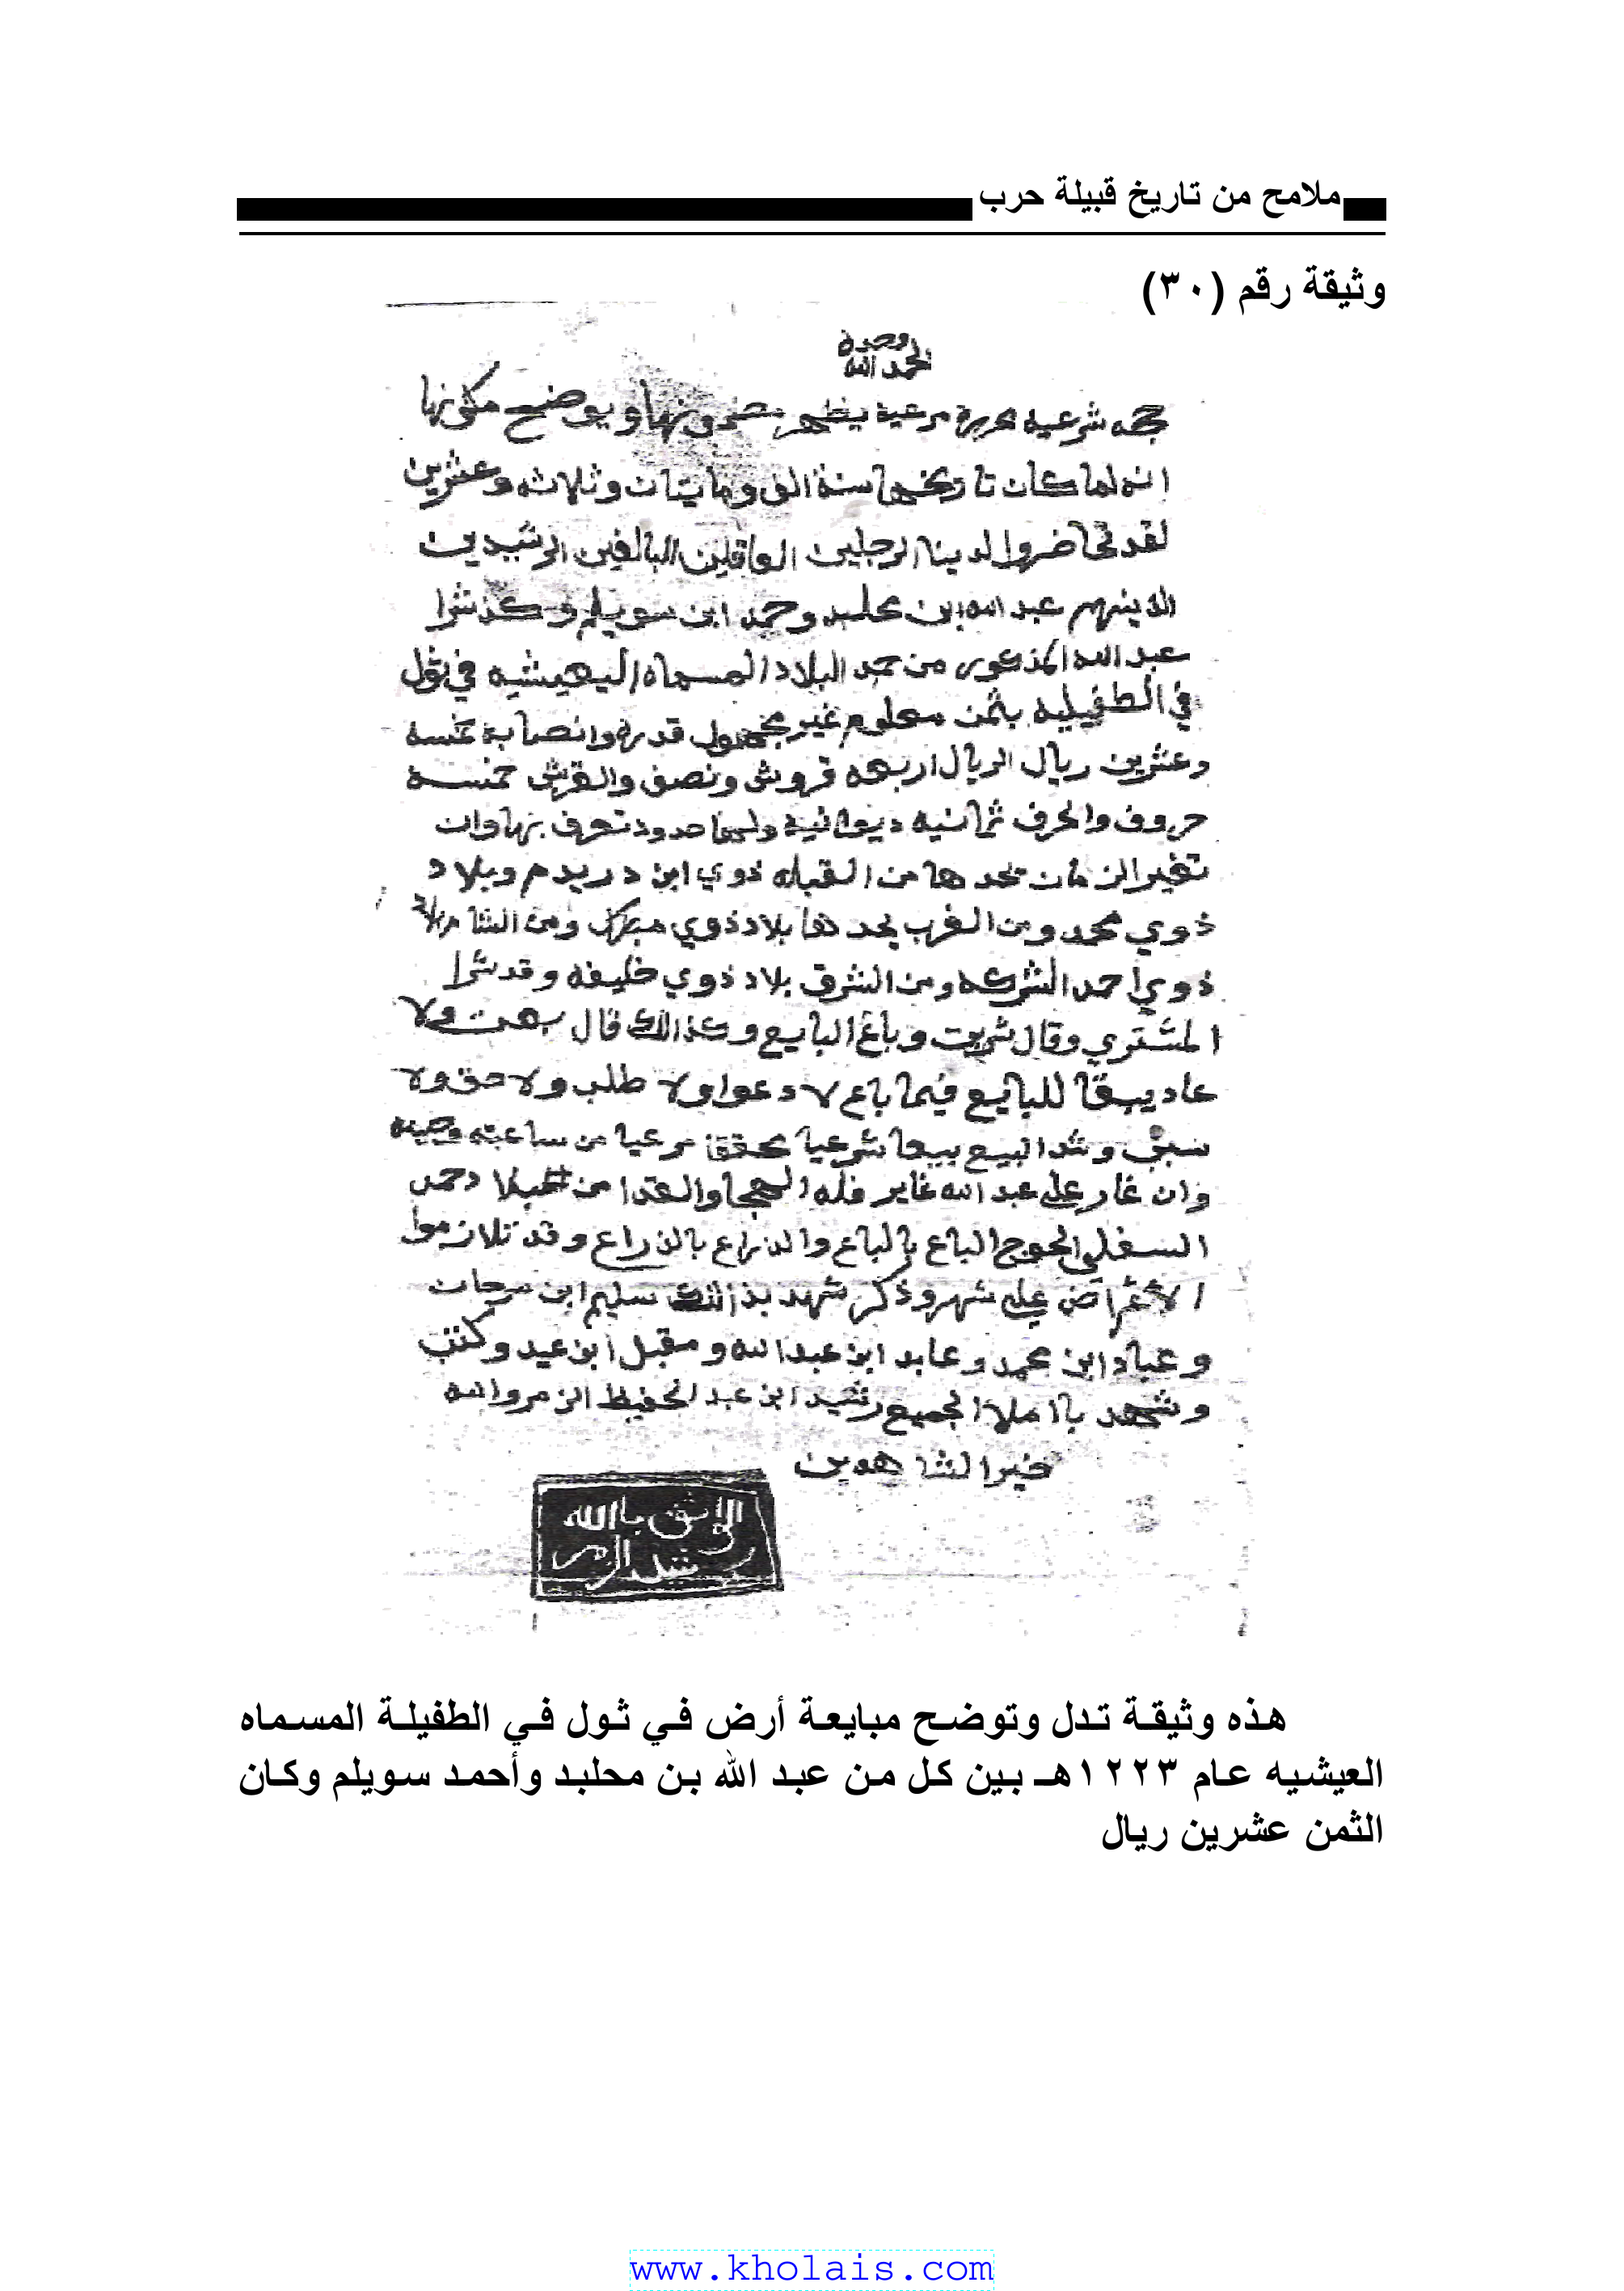 ملامح من تاريخ قبيلة حرب
وثيقة رقم (٣٠)
الحمد لله وحده
حجه شرعيه محررة مرعية يظهر مضمونها ويوضح مكونها
انه لما كان تاريخها سنة الف ومايتان وثلاثه وعشرين
لقد تحاضروا لدينا الرجلين العاقلين البالغين الرشيدين
الذينهم عبد الله ابن محلبد وحمد ابن سويلم وكذ شرا
عبد الله المذكور من حمد البلاد المسماه اليعيشيه في ثول
في الطفيليه بثمن معلوم غير مجهول قدره وانصابه خمسه
وعشرين ريال الريال اربعه قروش ونصف والقرش خمسه
حروف والحرف ثمانيه ديوانيه ولها حدود تعرف بها وان
تغير الزمان يحدها من القبله ذوي ابن دريدم وبلاد
ذوي محمد ومن الغرب يحدها بلاد ذوي مبارك ومن الشام بلاد
ذوي احمد الشركه ومن الشرق بلاد ذوي خليفه وقد شرا
المشتري وقال شريت وباع البايع وكذالك قال بعت ولا
عاد يبقا للبايع فيما باع لا دعوا ولا طلب ولا حق ولا
سبق وشد البيع بيعا شرعيا محققا مرعيا من ساعته وحينه
وان غار على عبد الله غاير فله الحجا والعتدا من حمد
السفلي الحوج الباع بالباع والذراع بالذراع وقد تلازموا
الاعراض على شهر وذكر شهد بذالك سليم ابن مرجان
وعباد ابن محمد وعابد ابن عبد الله ومقبل ابن عيد وكتب
وشهد باملاا الجميع رشيد ابن عبد الحفيظ الزمر والله
خير الشاهدين
الواثق بالله
رشيد الزمر
هذه وثيقة تدل وتوضح مبايعة أرض في ثول في الطفيلة المسماه
العيشيه عام ١٢٢٣هـ بين كل من عبد الله بن محلبد وأحمد سويلم وكان
الثمن عشرين ريال
www.kholais.com